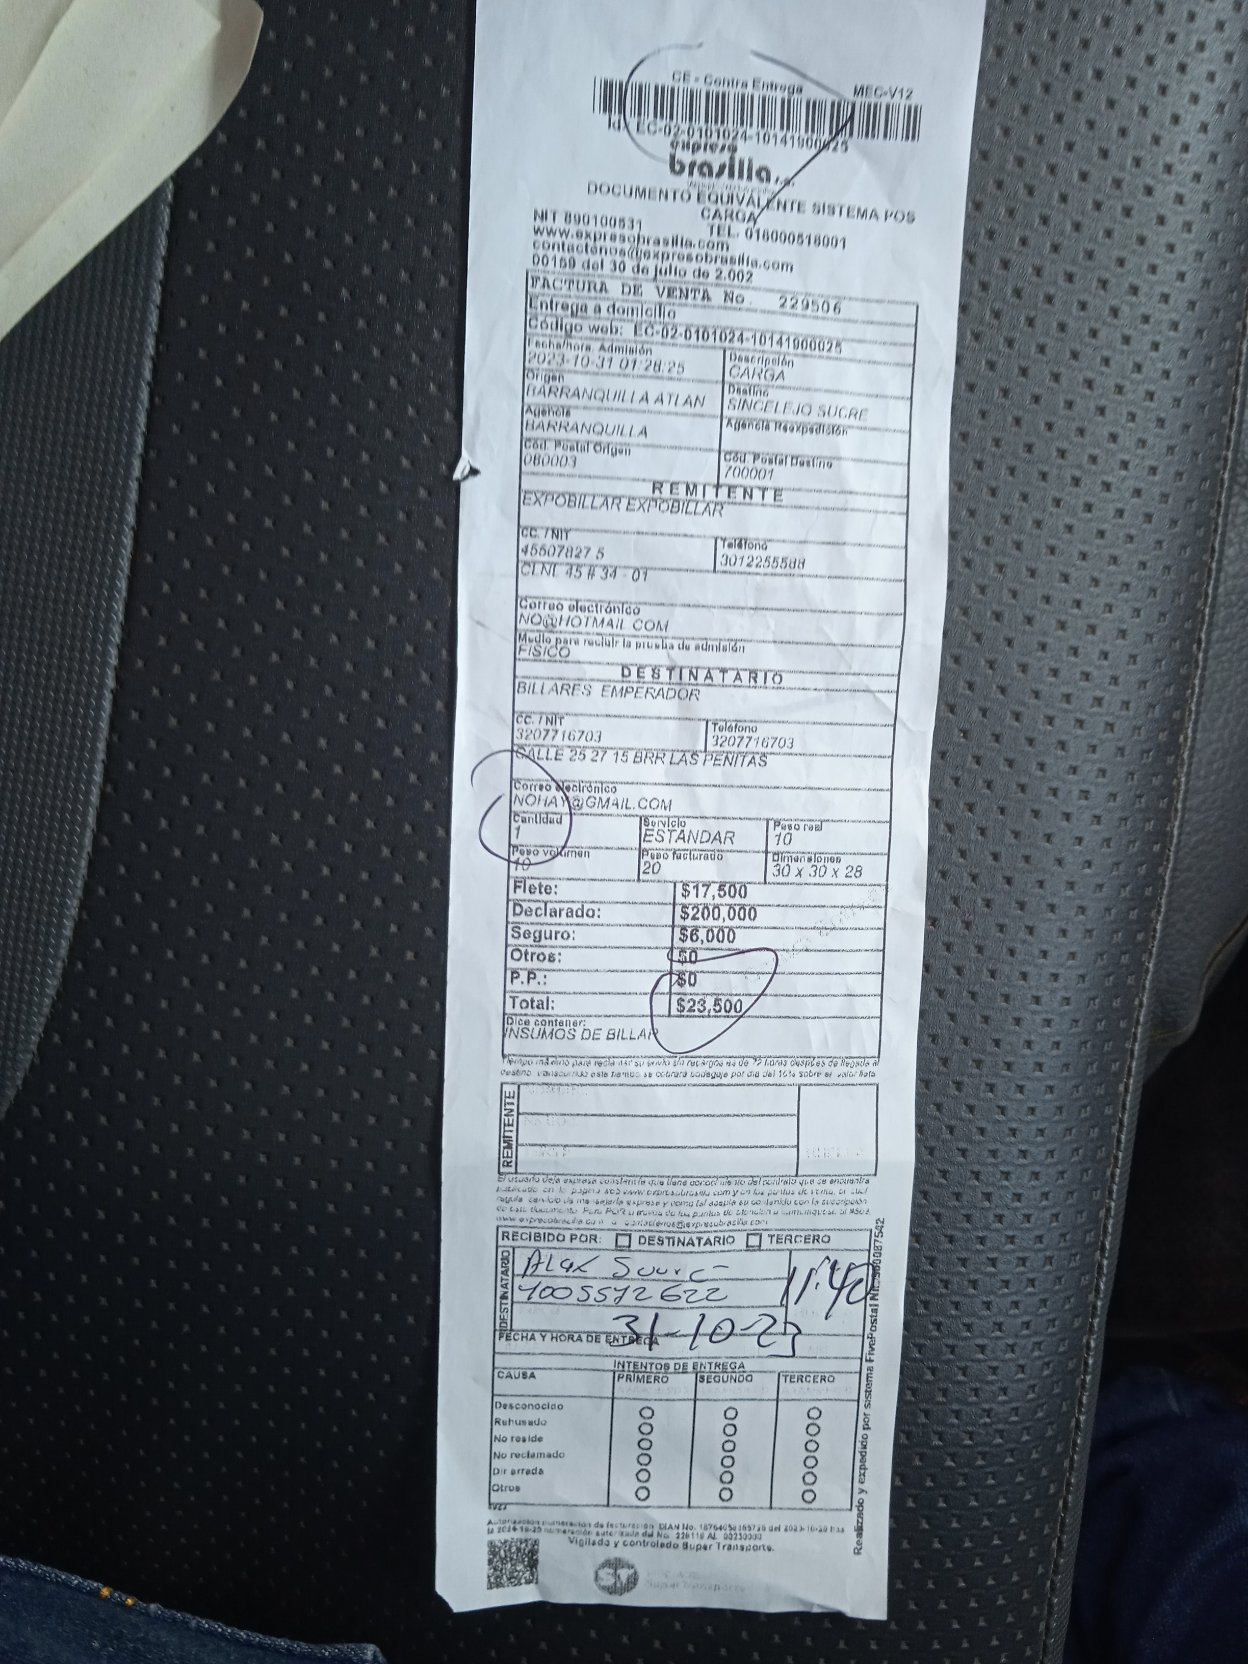 CE - Contra Entrega MEC-V12
Id. EC-02-0101024-10141900025
expreso
brasilia
DOCUMENTO EQUIVALENTE SISTEMA POS
CARGA
NIT 890100531 TEL. 018000518001
www.expresobrasilia.com
contactenos@expresobrasilia.com
00159 del 30 de julio de 2.002
FACTURA DE VENTA No. 229506
Entrega a domicilio
Código web: EC-02-0101024-10141900025
Fecha/hora. Admisión Descripción
2023-10-31 01:28:25 CARGA
Origen Destino
BARRANQUILLA ATLAN SINCELEJO SUCRE
Agencia Agencia Reexpedición
BARRANQUILLA
Cód. Postal Origen Cód. Postal Destino
080003 700001
REMITENTE
EXPOBILLAR EXPOBILLAR
CC. / NIT Teléfono
45507827 5 3012255588
CLNL 45 # 34 - 01
Correo electrónico
NO@HOTMAIL.COM
Medio para recibir la prueba de admisión
FISICO
DESTINATARIO
BILLARES EMPERADOR
CC. / NIT Teléfono
3207716703 3207716703
CALLE 25 27 15 BRR LAS PENITAS
Correo electrónico
NOHAY@GMAIL.COM
Cantidad Servicio Peso real
1 ESTANDAR 10
Peso volumen Peso facturado Dimensiones
10 20 30 x 30 x 28
Flete: $17,500
Declarado: $200,000
Seguro: $6,000
Otros: $0
P.P.: $0
Total: $23,500
Dice contener:
INSUMOS DE BILLAR
REMITENTE
RECIBIDO POR: DESTINATARIO TERCERO
DESTINATARIO
Alex
1005572622 11:40
31-10-23
FECHA Y HORA DE ENTREGA
INTENTOS DE ENTREGA
CAUSA PRIMERO SEGUNDO TERCERO
Desconocido
Rehusado
No reside
No reclamado
Dir errada
Otros
Vigilado y controlado Super Transporte.
Realizado y expedido por sistema FivePostal